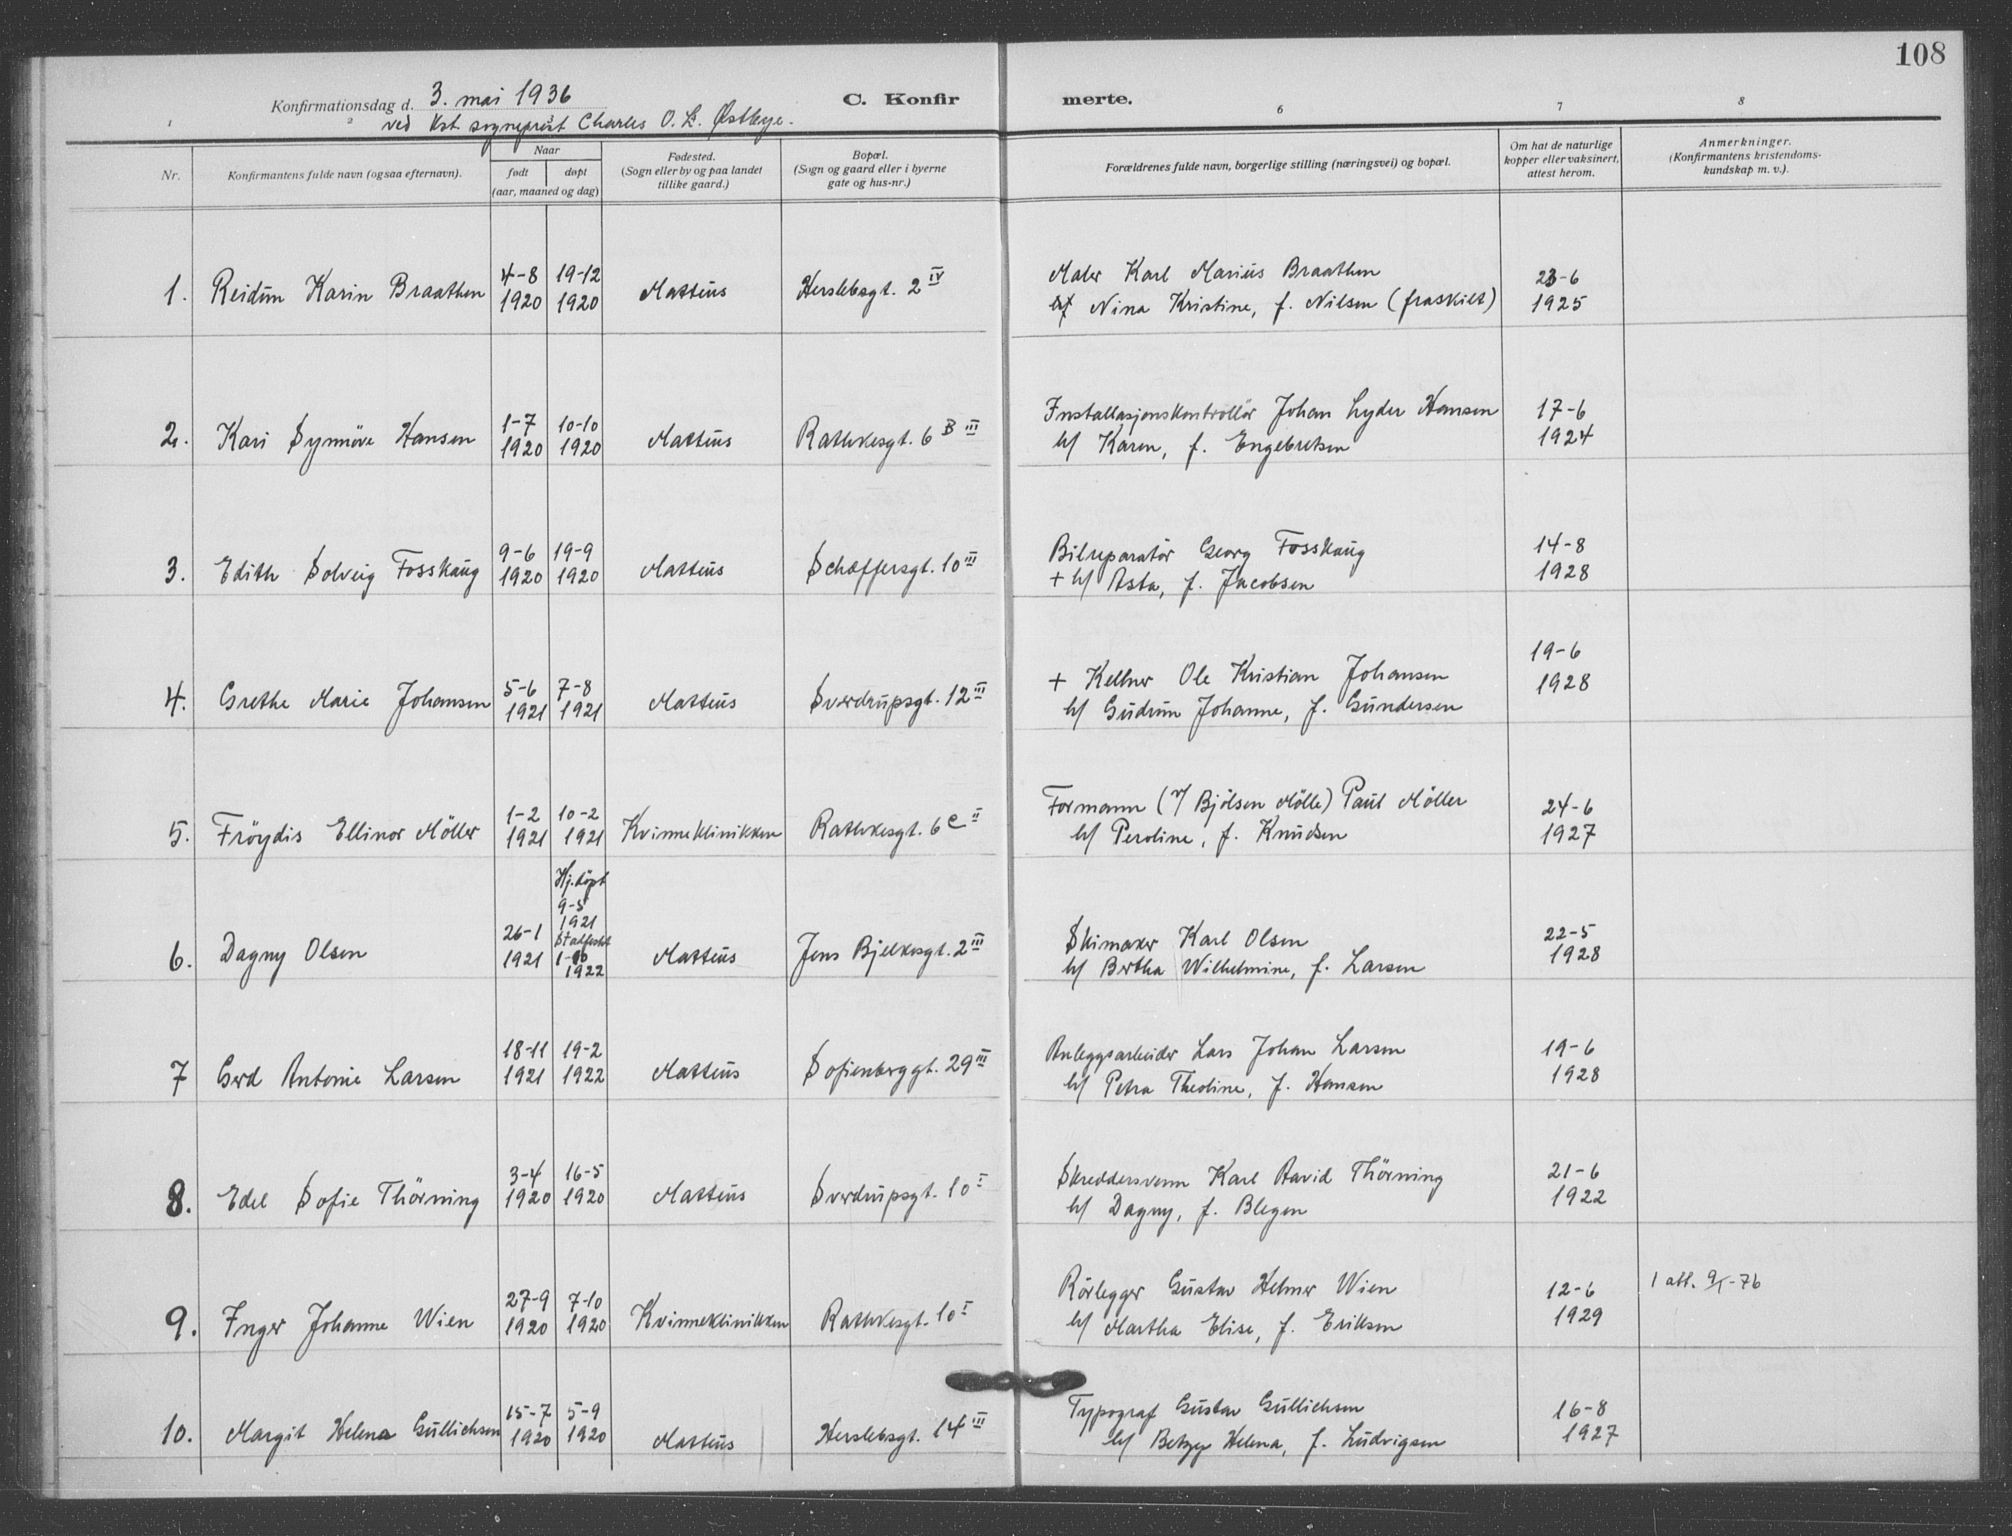 108
Konfirmationsdag d. 3. mai 1936 C. Konfirmerte.
ved kst. sogneprest Charles O. L. Østbye.
1 2 3 6 7 8
Nr. Konfirmantens fulde navn (ogsaa efternavn). Naar født døpt (aar, maaned og dag) Fødested. (Sogn eller by og paa landet tillike gaard.) Bopæl. (Sogn og gaard eller i byerne gate og hus-nr.) Forældrenes fulde navn, borgerlige stilling (næringsvei) og bopæl. Om hat de naturlige kopper eller vaksinert, attest herom. Anmerkninger. (Konfirmantens kristendomskundskap m. v.).
1. Reidun Karin Braathen 4-8 1920 19-12 1920 Matteus Herslebsgt. 2 IV Maler Karl Marius Braathen 23-6
h/ Nina Kristine, f. Nilsen (fraskilt) 1925
2. Kari Synnöve Hansen 1-7 1920 10-10 1920 Matteus Rathkesgt. 6 B III Installasjonskontrollör Johan Lyder Hansen 17-6
h/ Karen, f. Engebretsen 1924
3. Edith Solveig Fosskaug 9-6 1920 19-9 1920 Matteus Schæffersgt. 10 III Bilreparatör Georg Fosskaug 14-8
+ h/ Asta, f. Jacobsen 1928
4. Grethe Marie Johansen 5-6 1921 7-8 1921 Matteus Sverdrupsgt. 12 III + Kellner Ole Kristian Johansen 19-6
h/ Gudrun Johanne, f. Gundersen 1928
5. Fröydis Ellinor Möller 1-2 1921 10-2 1921 Kvinneklinikken Rathkesgt. 6 C II Formann (v/ Bjölsen Mölle) Paul Möller 24-6
h/ Peroline, f. Knudsen 1927
6. Dagny Olsen 26-1 1921 Hj.döpt 9-5 1921 Stadfestet 1922 Matteus Jens Bjelkesgt. 2 III Skimaker Karl Olsen 22-5
h/ Bertha Wilhelmine, f. Larsen 1928
7 Gerd Antonie Larsen 18-11 1921 19-2 1922 Matteus Sofienberggt. 29 III Anleggsarbeider Lars Johan Larsen 19-6
h/ Petra Theoline, f. Hansen 1928
8. Edel Sofie Thörning 3-4 1920 16-5 1920 Matteus Sverdrupsgt. 10 I Skreddersvenn Karl David Thörning 21-6
h/ Dagny, f. Blegen 1922
9. Inger Johanne Wien 27-9 1920 7-10 1920 Kvinneklinikken Rathkesgt. 10 I Rörlegger Gustav Helmer Wien 12-6 1 att. 9/1-76
h/ Martha Elise, f. Eriksen 1929
10. Margit Helena Gullichsen 15-7 1920 5-9 1920 Matteus Herslebsgt. 14 III Typograf Gustav Gullichsen 16-8
h/ Betzy Helena, f. Ludvigsen 1927